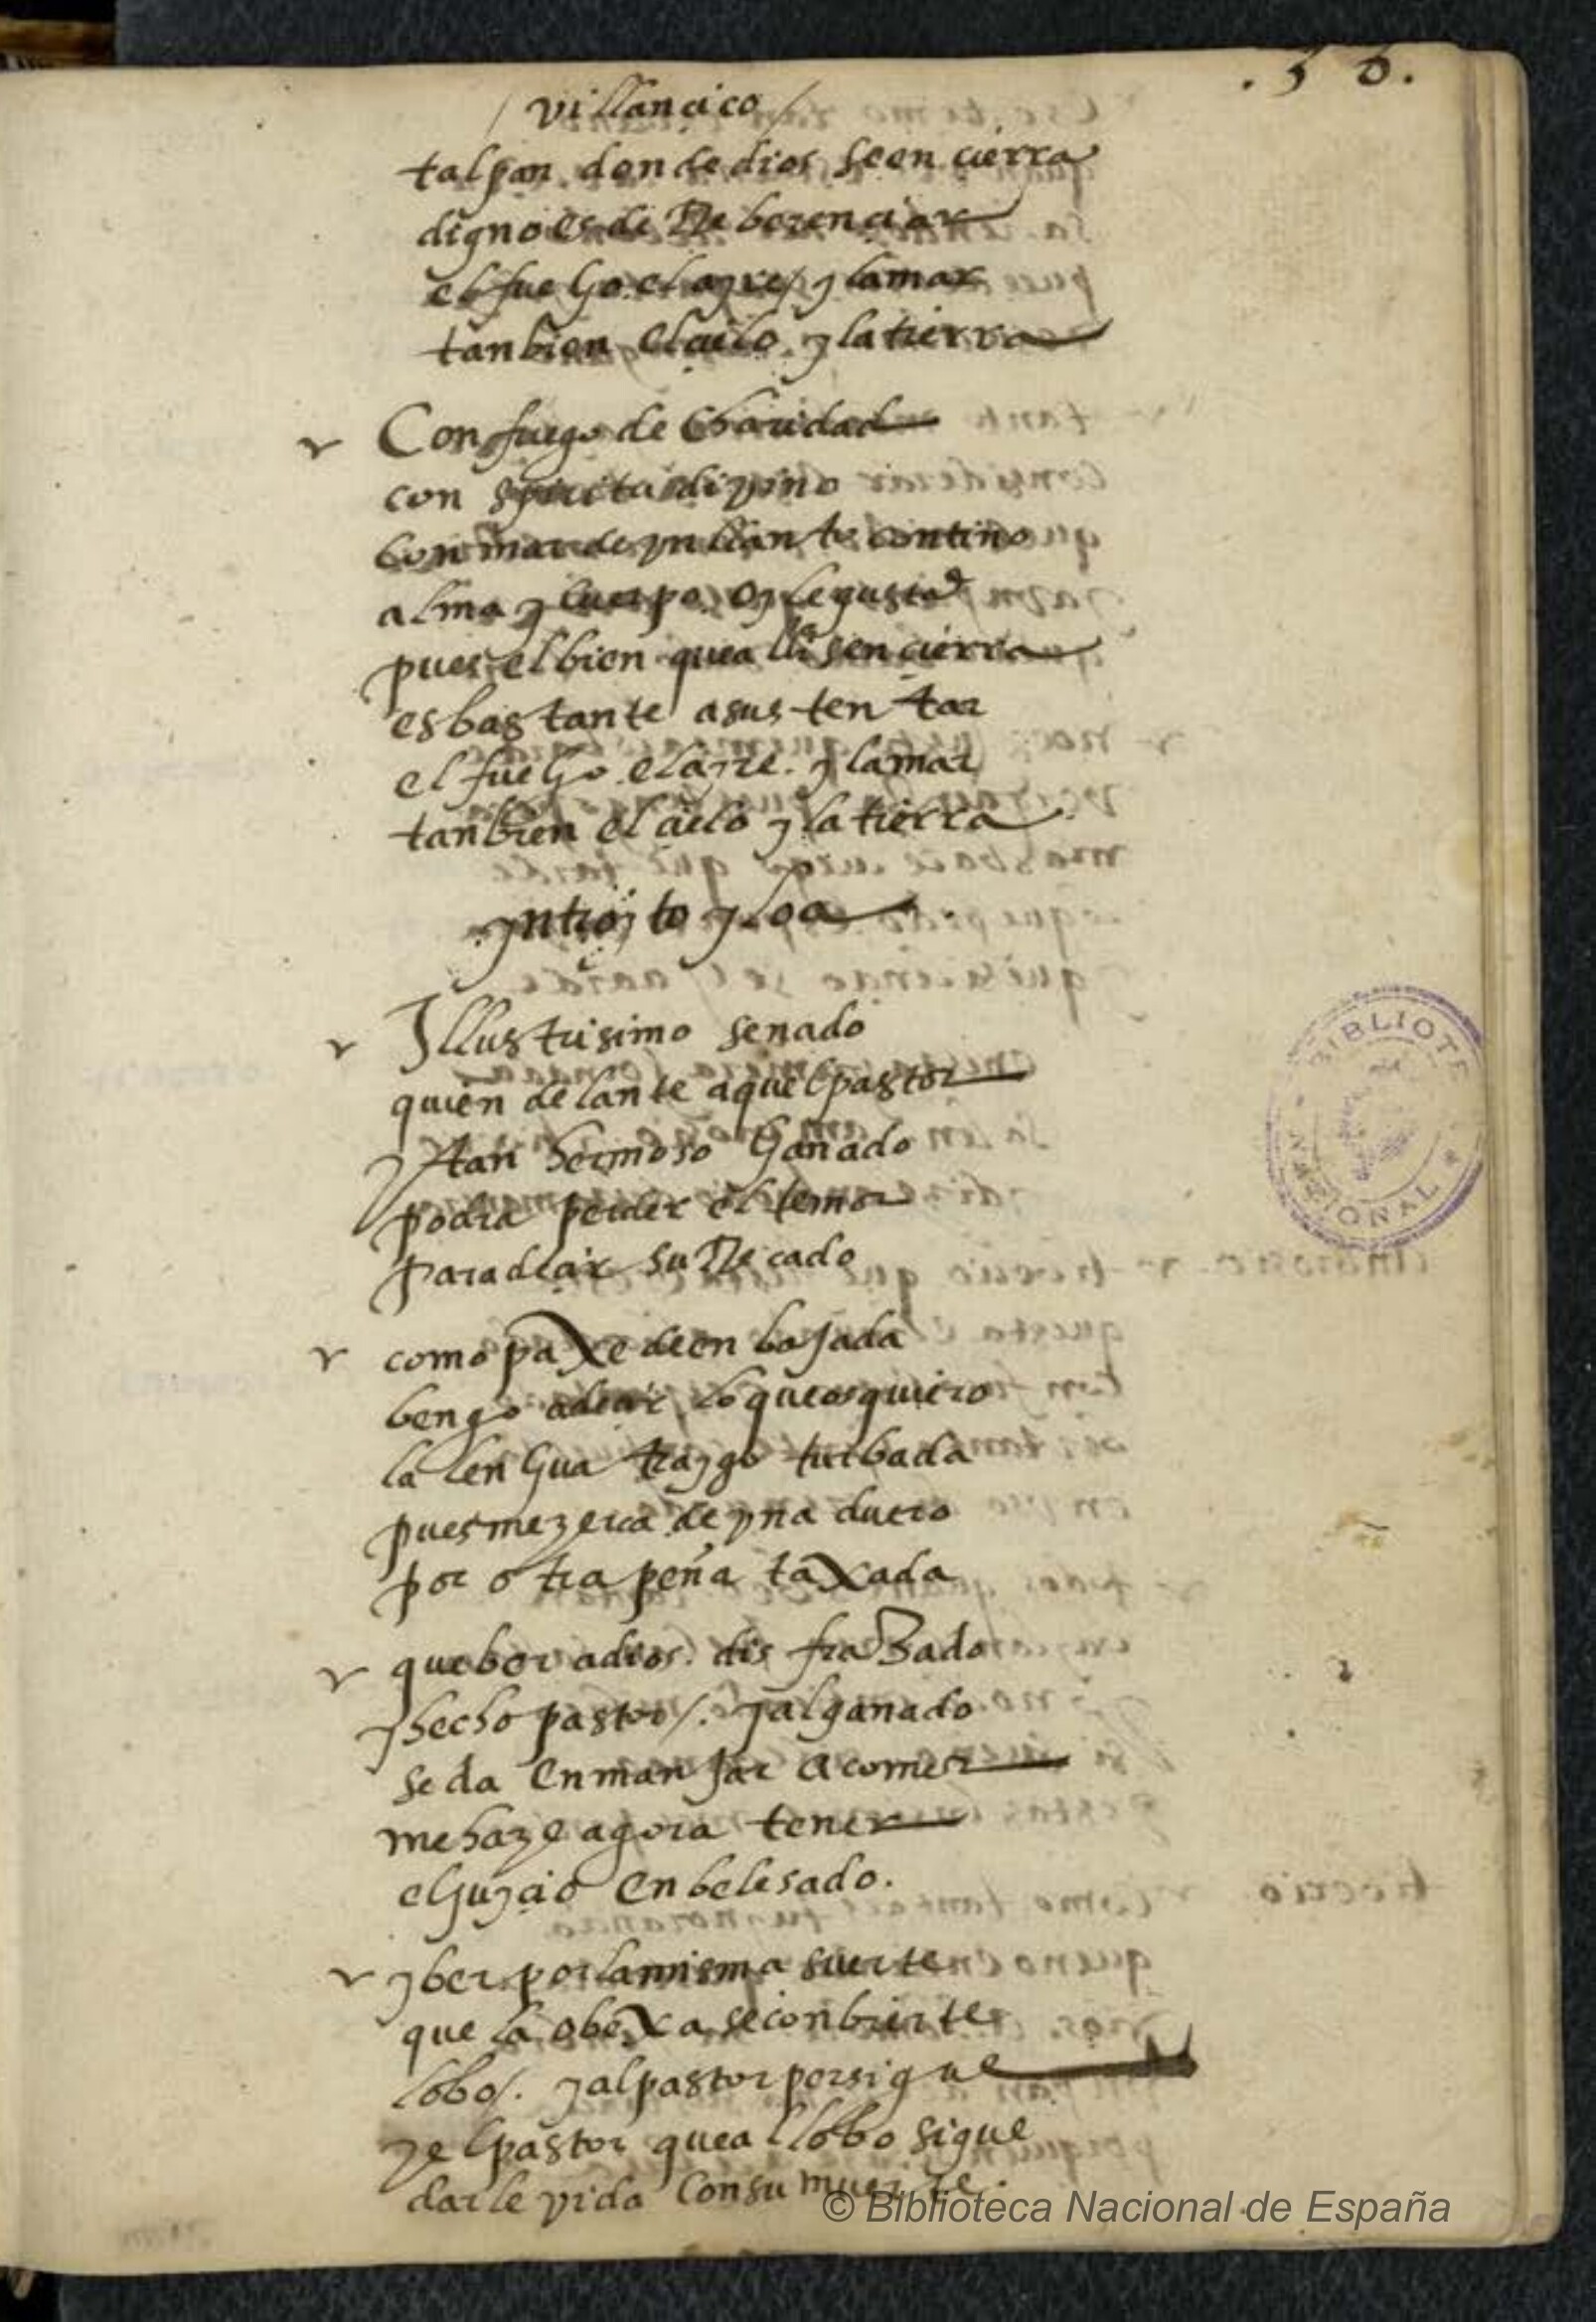 . 3 6 .
/ villancico /
tal pan donde dios se en cierra
digno es de Reberenciar
el fuego el ayre / y la mar
tanbien el cielo y la tierra
Con fuego de charidad
con spiritu divino
con mar de contino
alma y cuerpo oy le gustad
pues el bien que alli sencierra
es bastante a sustentar
el fuego el ayre y la mar
tanbien el cielo y la tierra
yntroyto y loa
Illustrisimo senado
quien delante aquel pastor
y tan hermoso ganado
podra perder el temor
para decir su Recado
como paxe de enbajada
bengo a decir lo que os quiero
la lengua traygo turbada
pues me zerca de vna
por otra pena taxada
que ber a dios disfrazado
y hecho pastor /. y al ganado
se da en manjar a comer
me haze agora tener
el juyzio enbelesado.
y ber por la misma suerte
que la obexa se conbierte
lobo /. y al pastor persigue
y el pastor que al lobo sigue
darle vida con su muerte.
BIBLIOTECA NACIONAL
© Biblioteca Nacional de España